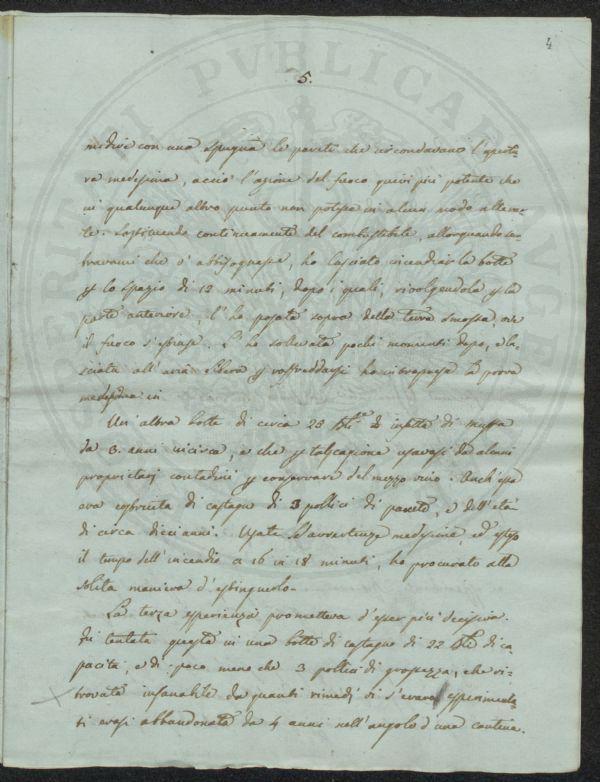 4
5.
medire con una spugna le parete che circondavano l'apertu-
ra medesima, acciò l'azione del fuoco quivi più potente che
in qualunque altro punto non potesse in alcun modo
te. continuamente del combustibile, allorquando
che v'abbisognasse, ho lasciato incendiar la botte
lo spazio di 12 minuti, dopo i quali, rivolgendola
parte anteriore, l'ho posata sopra della terra smossa, ove
il fuoco s'estinse. L'ho sollevata pochi momenti dopo, e la-
sciata all'aria libera raffreddarsi ho intrapresa la prova
medesima in
Un'altra botte di circa 23 infetta di muffa
da 3. anni incirca, e che tal cagione usavasi da alcuni
proprietarj contadini conservare del mezzo vino. Anch'essa
era costruita di castagno di 3 pollici di parete, e dell'età
di circa dieci anni. Usate l'avvertenze medesime, ed esteso
il tempo dell'incendio a 16 in 18 minuti, ho procurato alla
solita maniera d'estinguerlo.
La terza esperienza prometteva d'esser più decisiva.
Fu tentata questa in una botte di castagno di 22 di ca
pacità, e di poco meno che 3 pollici di grossezza, che ri-
trovata insanabile da quanti rimedj vi s'erano esperimenta-
ti erasi abbandonata da 4 anni nell'angolo d'una cantina.